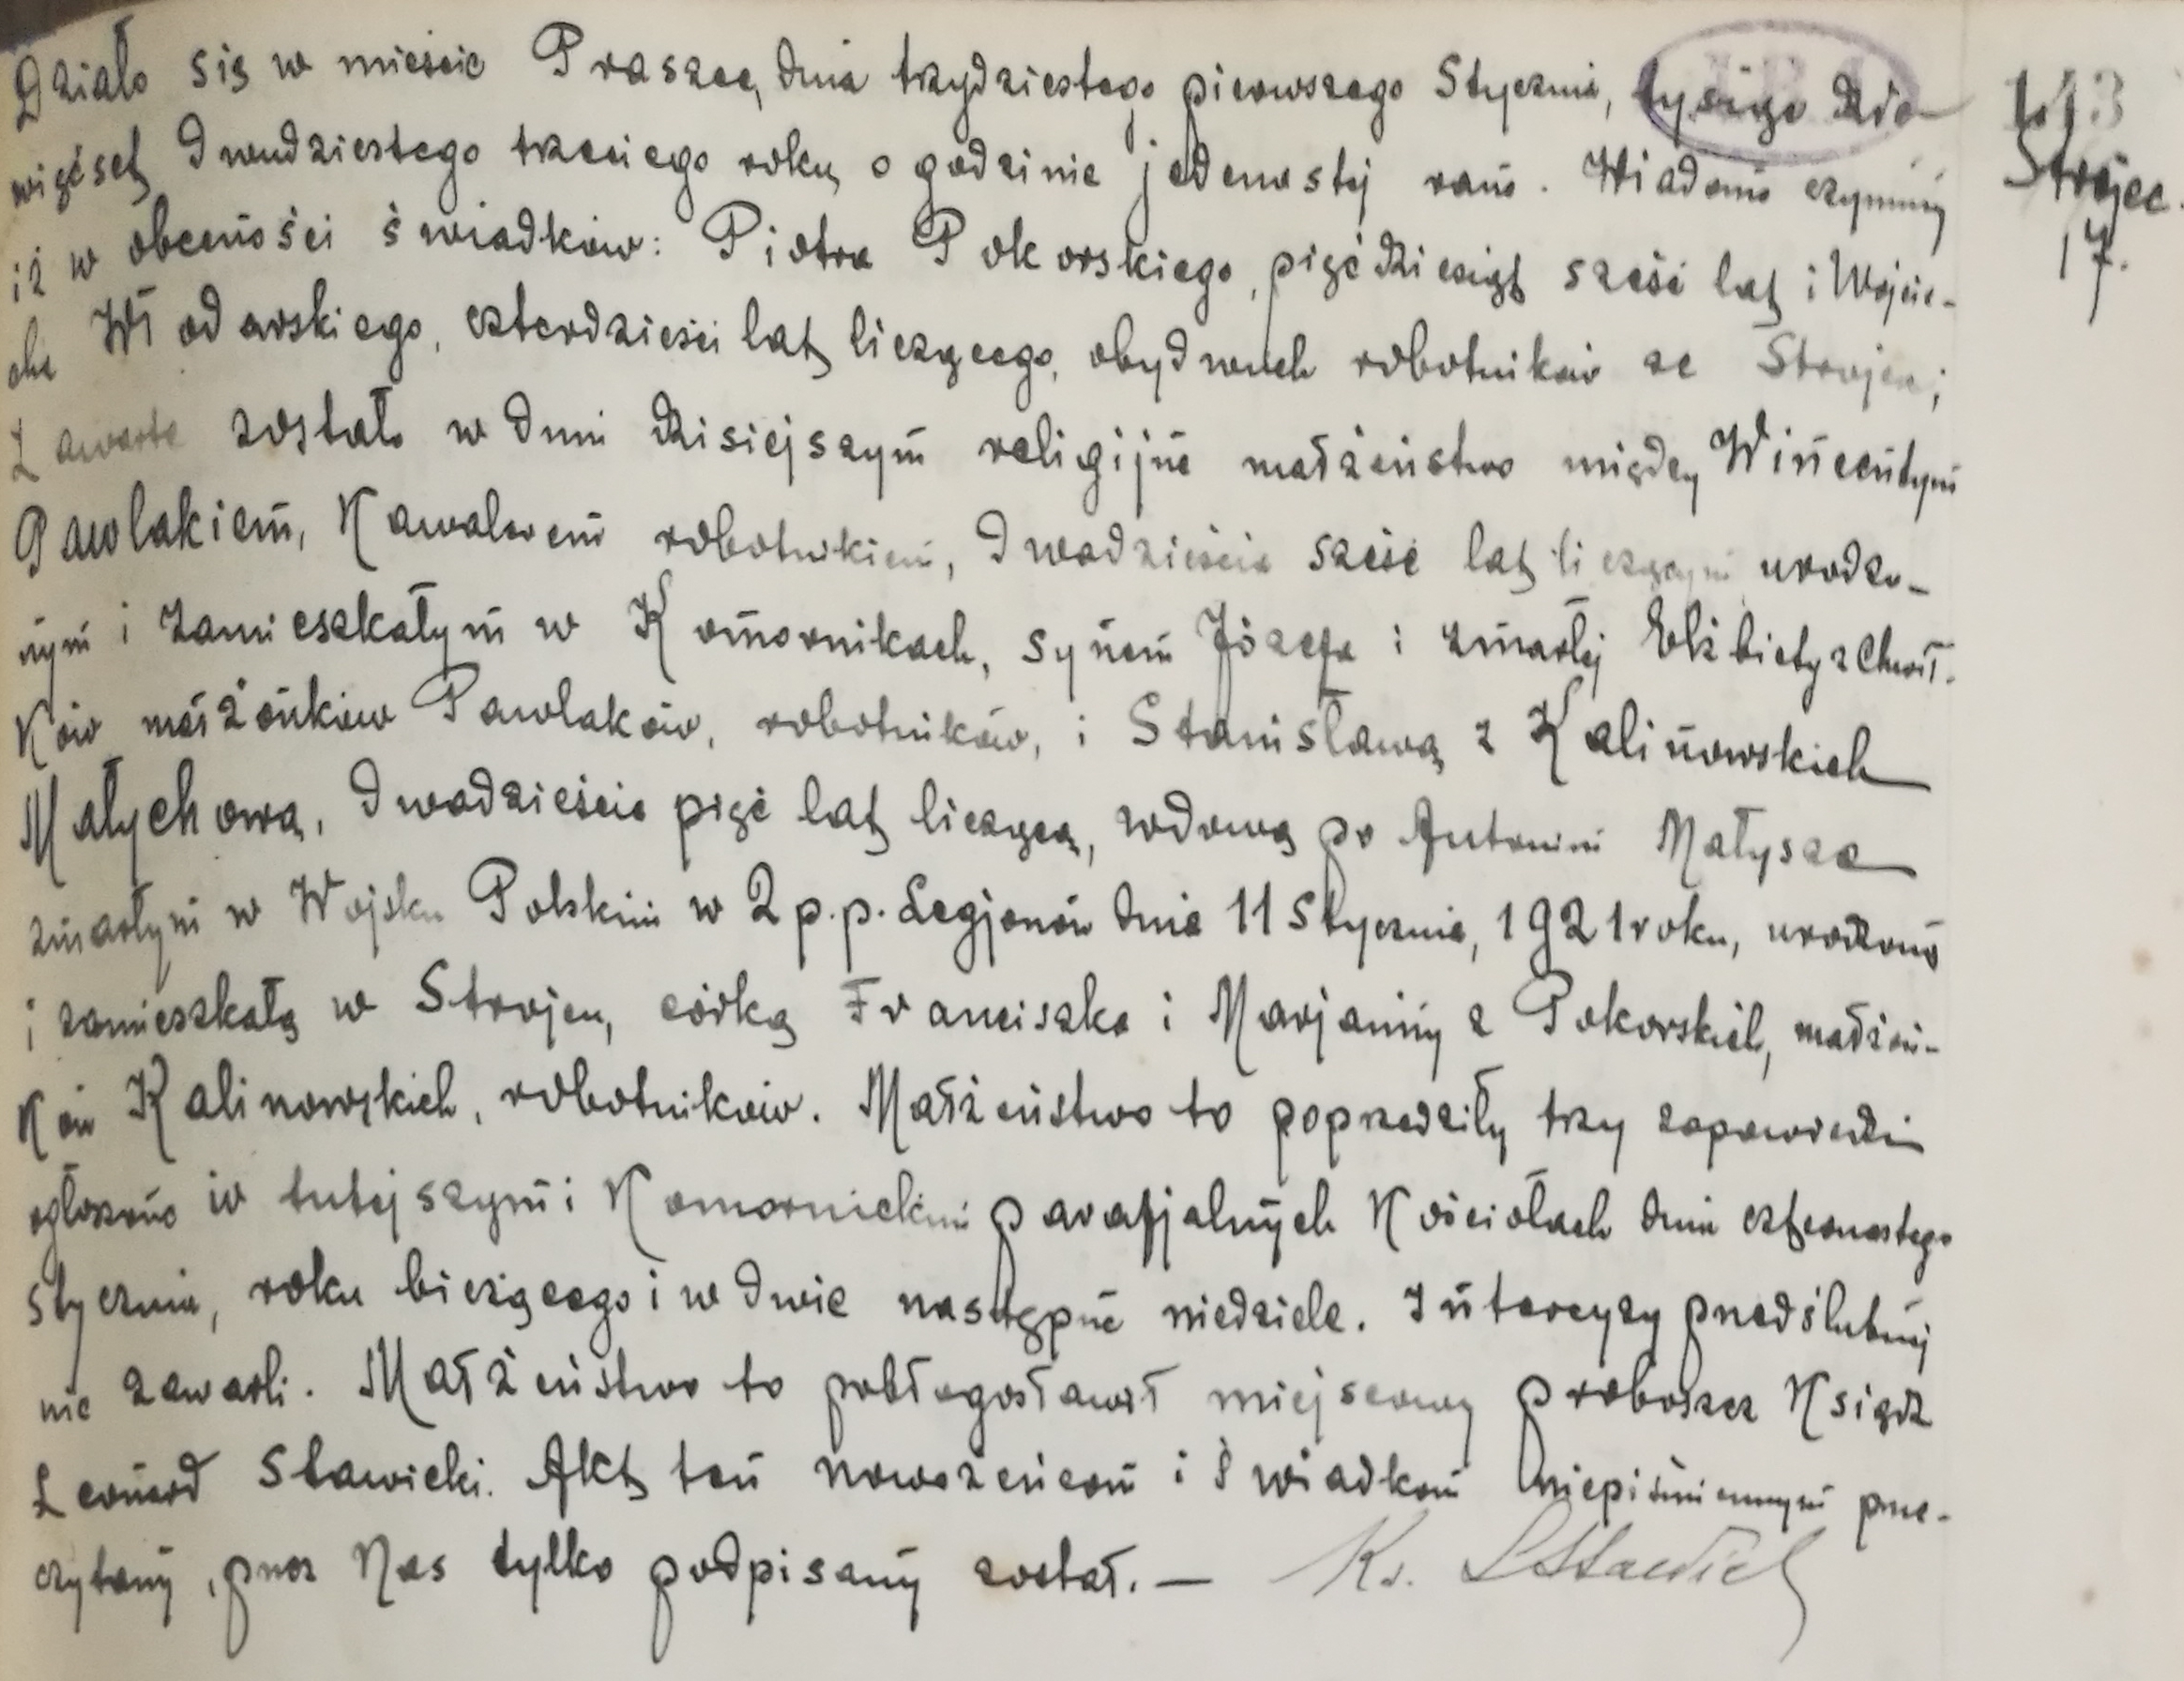 Działo się w mieście Praszce, dnia trzydziestego pierwszego Stycznia, tysiąc dzie-
więćset dwudziestego trzeciego roku, o godzinie jedenastej rano. Wiadomo czynimy
iż w obecności świadków: Piotra Pokorskiego, pięćdziesiąt sześć lat i Wojcie-
cha Włodarskiego, czterdzieści lat liczącego, obydwuch robotników ze Strojca;
Zawarte zostało w dniu dzisiejszym religijne małżeństwo między Wincentym
Pawlakiem, Kawalerem robotnikiem, dwadzieścia sześć lat liczącym urodzo-
nym i zamieszkałym w Komornikach, synem Józefa i zmarłej Elżbiety z Chwił-
ków małżonków Pawlaków, robotników, i Stanisławą z Kalinowskich
Małychową, dwadzieścia pięć lat liczącą, wdową po Antonim Małysze
zmarłym w Wojsku Polskim w 2 p.p. Legjonów dnia 11 Stycznia, 1921 roku, urodzoną
i zamieszkałą w Strojcu, córką Franciszka i Marjanny z Pokorskich, małżon-
ków Kalinowskich, robotników. Małżeństwo to poprzedziły trzy zapowiedzi
ogłoszone w tutejszym i Komornickim parafjalnych Kościołach dnia czternastego
stycznia, roku bieżącego i w dwie następne niedziele. Intercyzy przedślubnej
nie zawarli. Małżeństwo to pobłogosławił miejscowy proboszcz Ksiądz
Leonard Stawicki. Akt ten nowożeńcom i świadkom niepiśmiennym prze-
czytany, przez Nas tylko podpisany został. —
Ks. LStawicki
Strojec.
17.